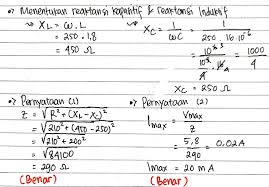 •) Menentukan reaktansi kapasitif & reaktansi Induktif
↳ XL = ω.L
= 250 . 1,8
= 450 Ω
Xc = 1/ωC = 1/(250 . 16 . 10⁻⁶)
= 1000/4
Xc = 250 Ω
•) Pernyataan (1)
Z = √(R² + (XL - Xc)²)
= √(210² + (450 - 250)²)
= √(210² + 200²)
= √84100
= 290 Ω
(Benar)
•) Pernyataan (2)
Imax = Vmax/Z
= 5,8/290 = 0.02 A
Imax = 20 mA
(Benar)